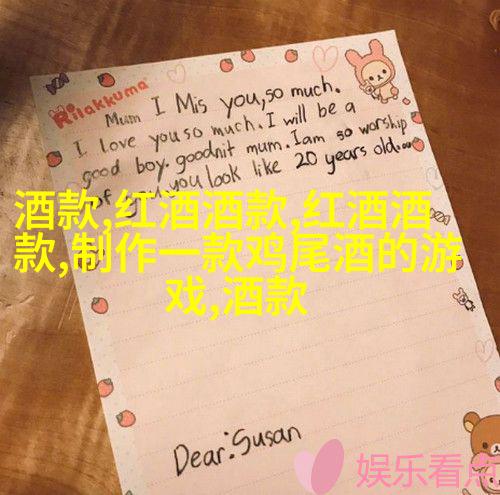 Rilakkuma
Mum I Mis you,so much.
I love you so much. I will be a
good boy. goodnit mum. I am so worship
of you look like 20 years old.
酒款,红酒酒款,红酒酒
款,制作一款鸡尾酒的游
戏,酒款
Dear:Susan
娱乐看点